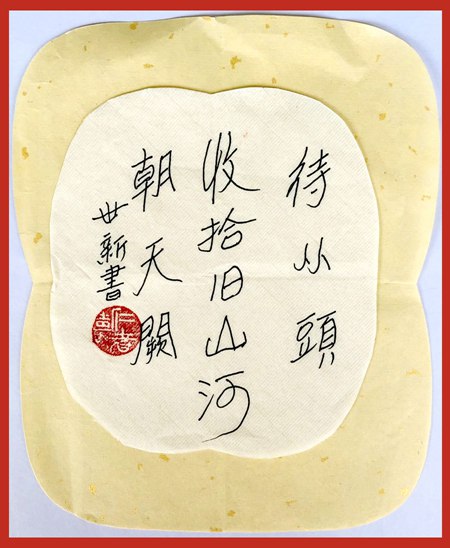 待从頭
收拾旧山河
朝天闕
世新書